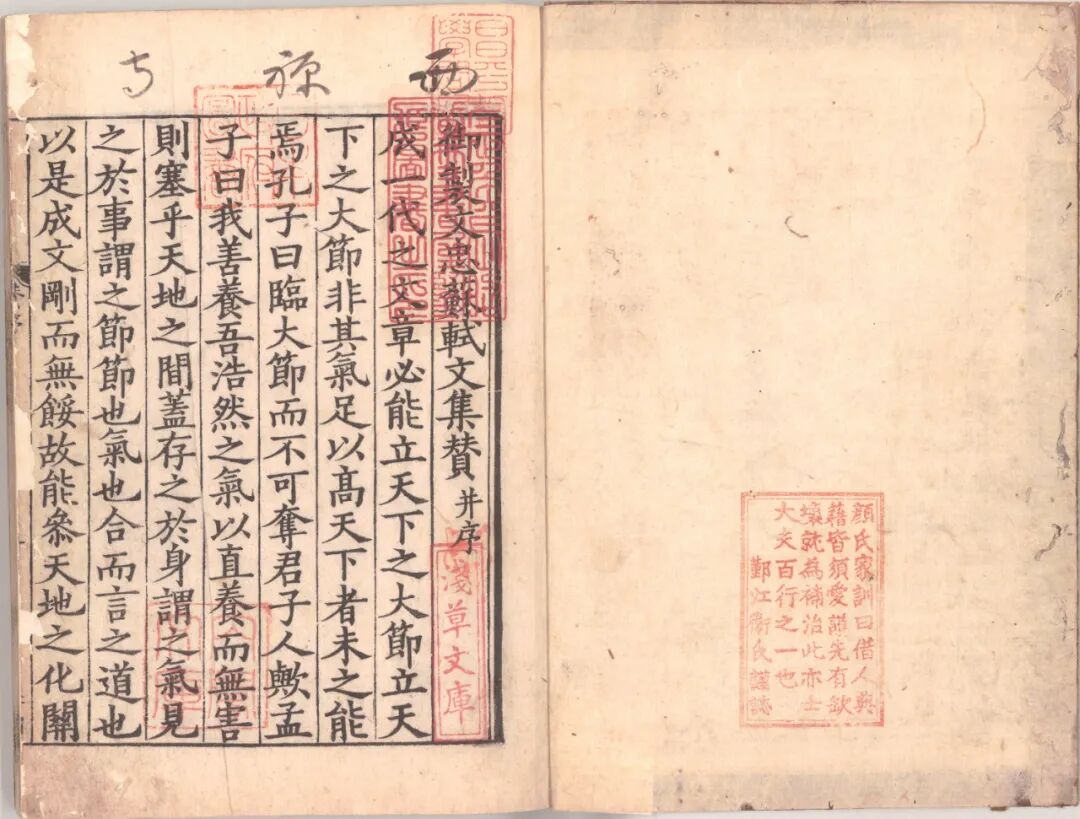 顔氏家訓曰借人典
藉皆須愛護先有缺
壞就為補治此亦士
大夫百行之一也
鄞江衛氏謹誌
西 寺
御製文忠蘇軾文集贊 并序
成一代之文章必能立天下之大節立天
下之大節非其氣足以髙天下者未之能
焉孔子曰臨大節而不可奪君子人歟孟
子曰我善養吾浩然之氣以直養而無害
則塞乎天地之間蓋存之於身謂之氣見
之於事謂之節節也氣也合而言之道也
以是成文剛而無餒故能叅天地之化關
淺草文庫